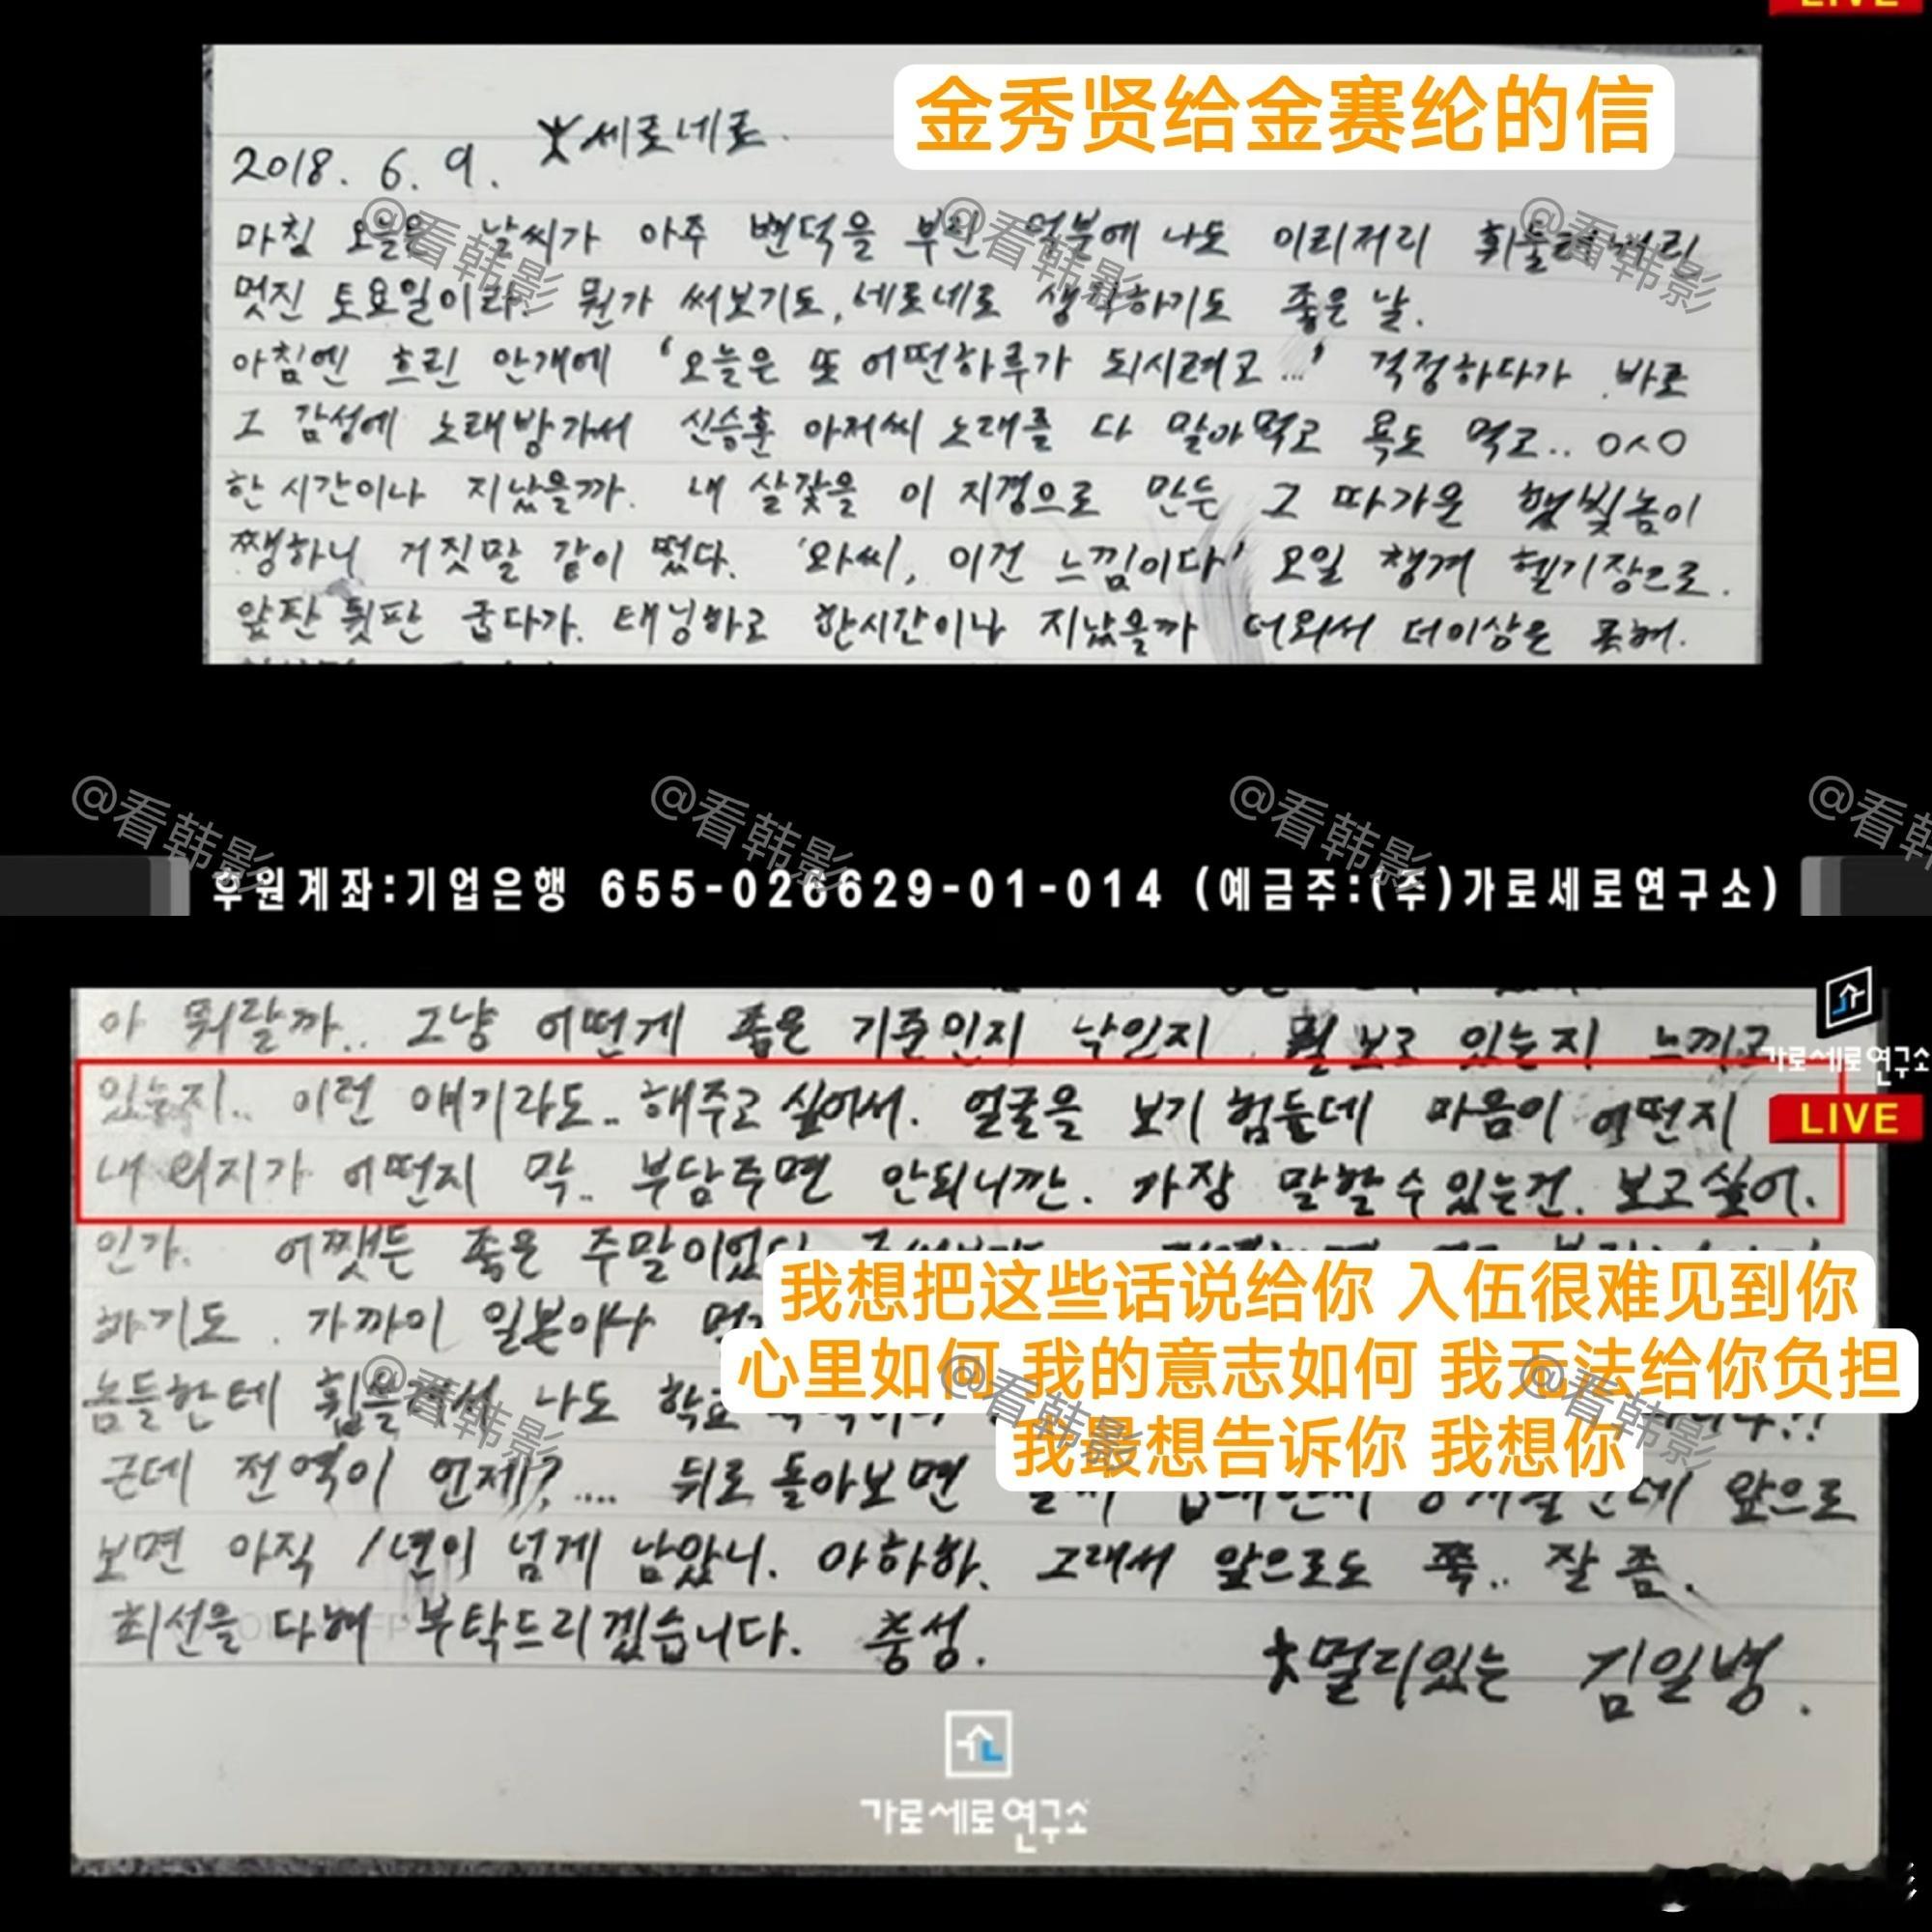 LIVE
金秀贤给金赛纶的信
세로네로.
2018. 6. 9.
마침 오늘은 날씨가 아주 변덕을 부린 덕분에 나도 이리저리
멋진 토요일이라. 뭔가 써보기도, 세로네로 생각하기도 좋은 날.
아침엔 흐린 안개에 '오늘은 또 어떤하루가 되시려고...' 걱정하다가 바로
그 감성에 노래방가서 신승훈 아저씨 노래를 다 말아먹고 욕도 먹고.. ㅇㅅㅇ
한 시간이나 지났을까. 내 살갗을 이 지경으로 만든 그 따가운 햇빛놈이
쨍하니 거짓말 같이 떴다. '와씨, 이건 느낌이다' 오일 챙겨 헬기장으로.
앞판 뒷판 굽다가. 태닝하고 한시간이나 지났을까 더워서 더이상은 못해.
@看韩影 @看韩影 @看韩影
@看韩影 @看韩影 @看韩影 @看韩
후원계좌:기업은행 655-026629-01-014 (예금주:(주)가로세로연구소)
아 뭐랄까.. 그냥 어떤게 좋은 기준인지 낙인지. 뭘 보고 있는지 느끼고
가로세로연구소
있는지.. 이런 얘기라도.. 해주고 싶어서. 얼굴을 보기 힘든데 마음이 어떤지
LIVE
내 의지가 어떤지 막.. 부담주면 안되니깐. 가장 말할수있는건. 보고싶어.
인가. 어쨋든 좋은 주말이었
我想把这些话说给你 入伍很难见到你
하기도. 가까이 일본이나
心里如何 我的意志如何 我无法给你负担
놈들한테 휩쓸려서 나도
我最想告诉你 我想你
@看韩影 @看韩影 @看韩影
근데 전역이 언제?.... 뒤로 돌아보면 앞으로
보면 아직 1년이 넘게 남았니. 아하하. 그래서 앞으로도 쭉.. 잘 좀.
최선을 다해 부탁드리겠습니다. 충성.
멀리있는 김일병.
가로세로연구소